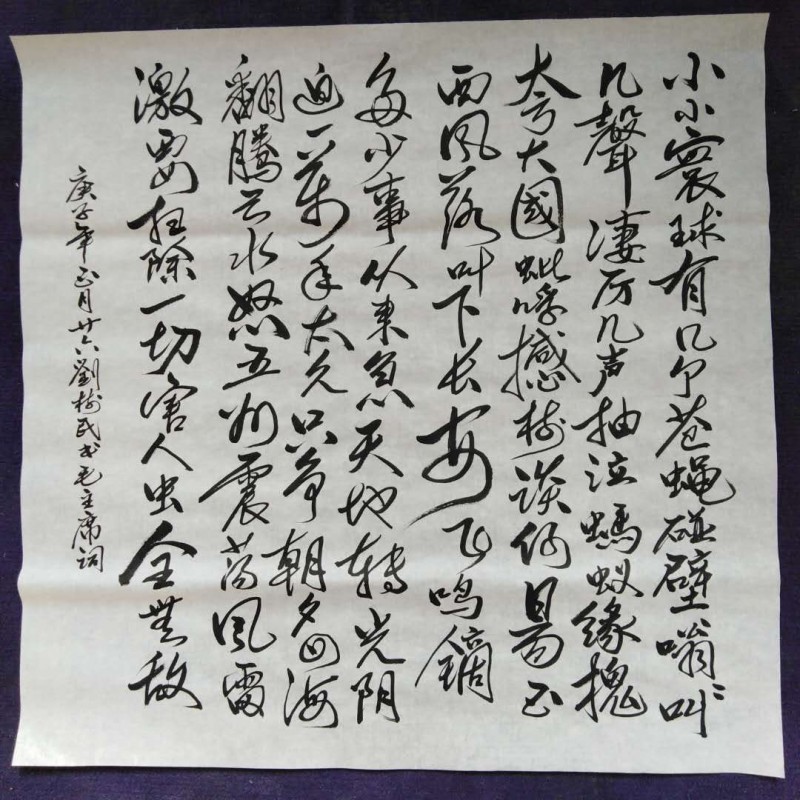 小小寰球有几个苍蝇碰壁嗡〻叫
几聲凄厉几声抽泣蚂蚁缘槐
夸大國蚍蜉撼树谈何易正
西风落叶下长安飞鸣镝
多少事从来急天地转光阴
迫一万年太久只争朝夕四海
翻腾云水怒五洲震荡风雷
激要扫除一切害人虫全無敌
庚子年正月廿六劉树民书毛主席词